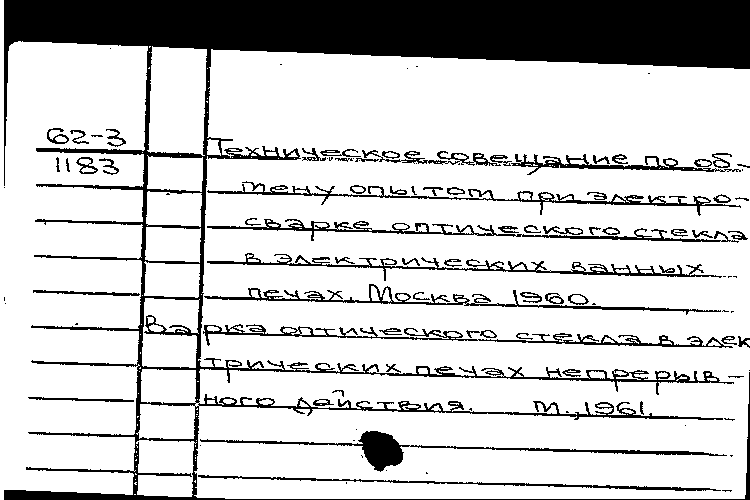 62-3
1183
Техническое совещание по об-
мену опытом при электро-
сварке оптического стекла
в электрических ванных
печах. Москва 1960.
Варка оптического стекла в элек
трических печах непрерыв-
ного действия. М., 1961.